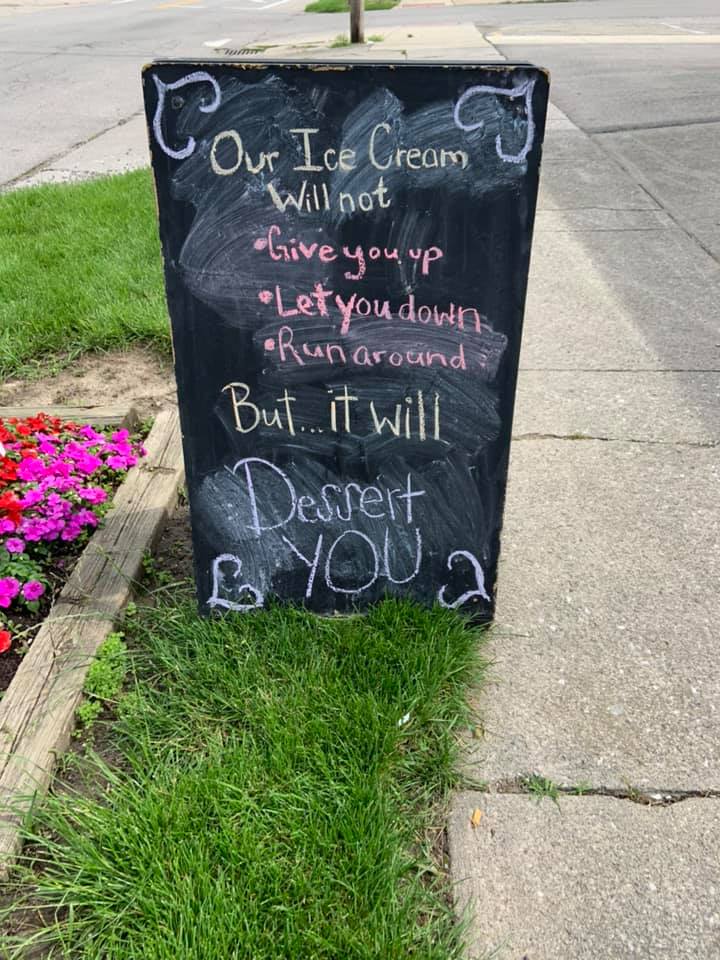 Our Ice Cream
Will not
•Give you up
•Let you down
•Run around
But...it will
Dessert
YOU